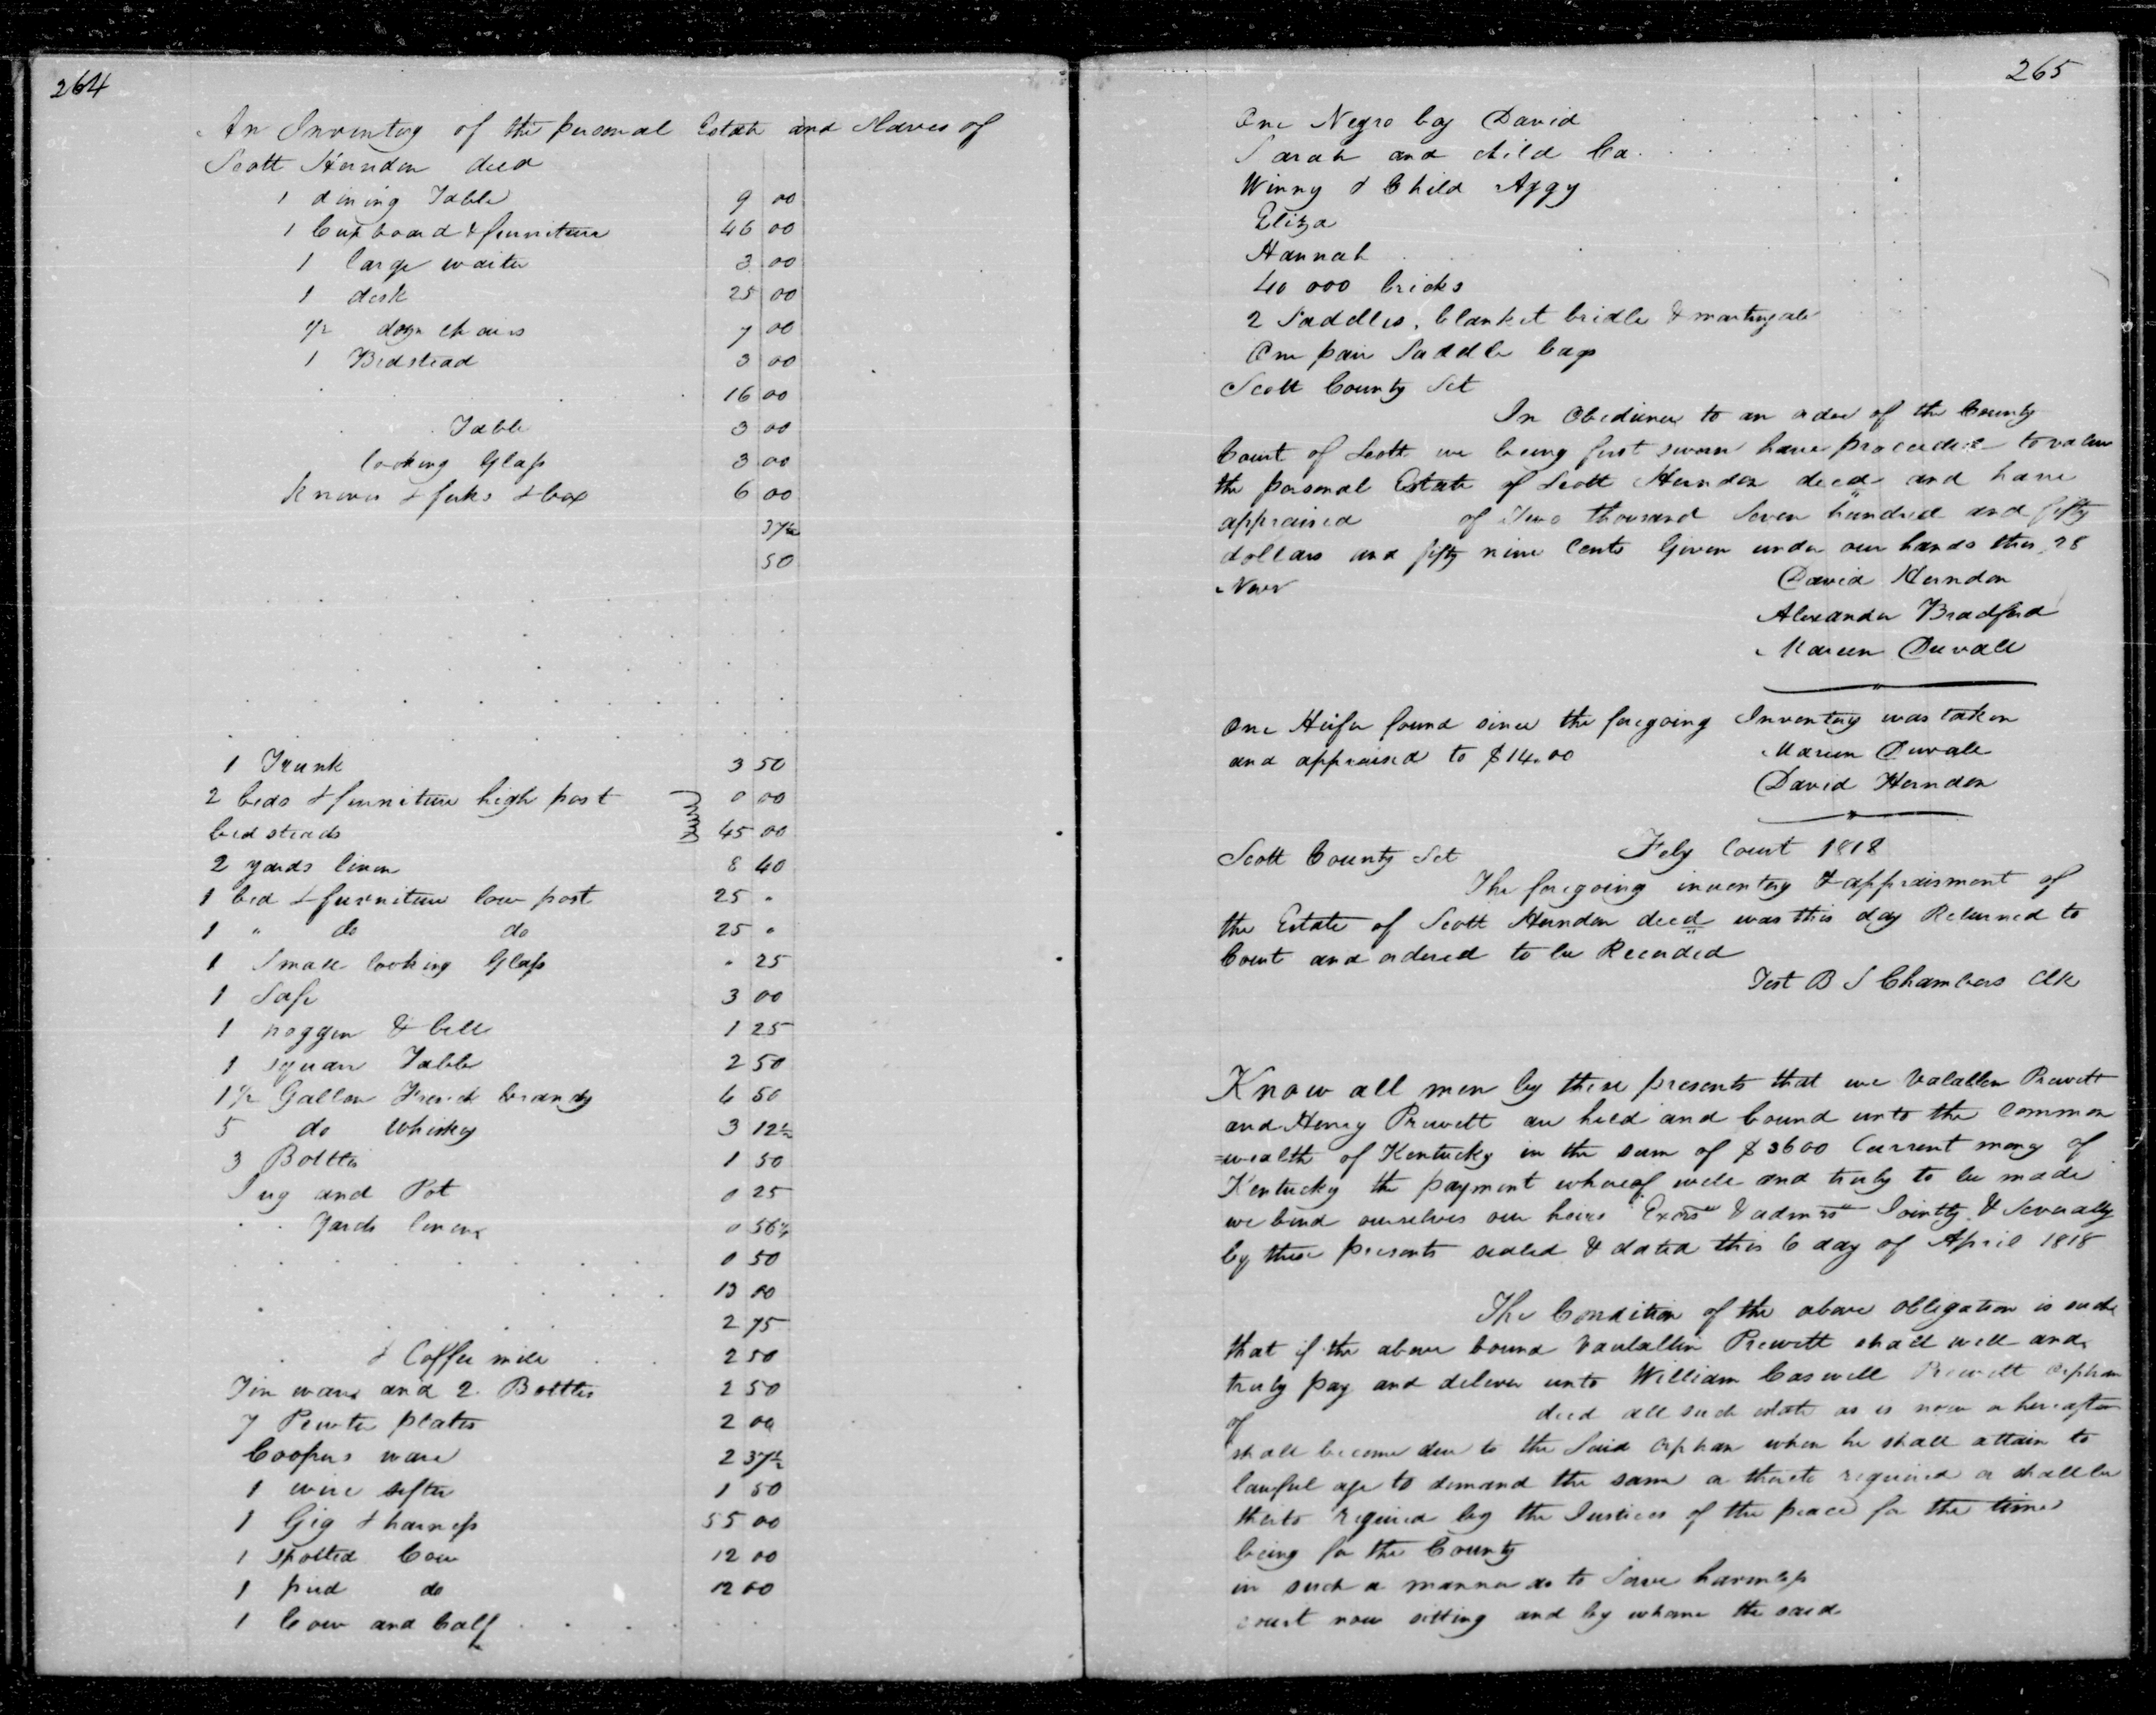 264
An Inventory of the personal Estate and Slaves of
Scott Herndon decd
1 dining Table 9 00
1 Cupboard & furniture 46 00
1 large waiter 3 00
1 desk 25 00
1/2 dozn chairs 7 00
1 Bedstead 3 00
16 00
Table 3 00
looking Glass 3 00
Knives & forks & box 6 00
37½
50
1 Trunk 3 50
2 beds & furniture high post 0 00
bed steads 45 00
2 yards linen 8 40
1 bed & furniture low post 25 "
1 " do do 25 "
1 Small looking Glass " 25
1 Safe 3 00
1 noggin & bell 1 25
1 square Table 2 50
1½ Gallon French brandy 6 50
5 do Whiskey 3 12½
3 Bottles 1 50
Jug and Pot 0 25
Yards linen 0 56¼
0 50
13 00
2 75
& Coffee mill 2 50
Tin ware and 2 Bottles 2 50
7 Pewter plates 2 00
Coopers ware 2 37½
1 wire sifter 1 50
1 Gig & harness 55 00
1 spotted Cow 12 00
1 pied do 12 00
1 Cow and Calf
265
One Negro boy David
Sarah and child Ca
Winny & Child Aggy
Eliza
Hannah
40 000 bricks
2 Saddles, blanket bridle & martingale
One pair Saddle bags
Scott County Sct
In Obedience to an order of the County
Court of Scott we being first sworn have proceeded to value
the personal Estate of Scott Herndon decd and have
appraised of Two thousand Seven hundred and fifty
dollars and fifty nine Cents Given under our hands this 28
Novr David Herndon
Alexander Bradford
Mareen Duvall
One Heifer found since the foregoing Inventory was taken
and appraised to $14.00 Mareen Duvall
David Herndon
Scott County Sct Feby Court 1818
The foregoing inventory & appraisment of
the Estate of Scott Herndon decd was this day Returned to
Court and ordered to be Recorded
Test B S Chambers Clk
Know all men by these presents that we Valallen Prewett
and Henry Prewett are held and bound unto the Common
=wealth of Kentucky in the sum of $3600 Current mony of
Kentucky the payment whereof well and truly to be made
we bind ourselves our heirs Exors & admrs Jointly & Severally
by these presents sealed & dated this 6 day of April 1818
The Condition of the above obligation is such
that if the above bound Vaulallin Prewett shall well and
truly pay and deliver unto William Caswell Prewett orphan
of decd all such estate as is now or hereafter
shall become due to the Said orphan when he shall attain to
lawful age to demand the same or thereto required or shall be
thereto required by the Justices of the peace for the time
being for the County
in such a manner as to Save harmless
court now sitting and by whome the said